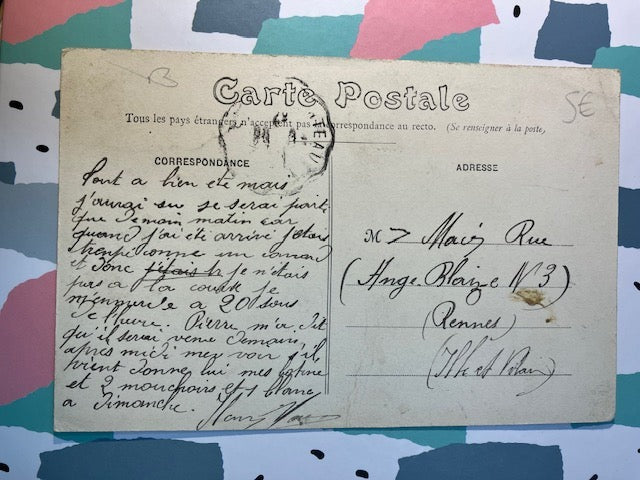 5€
Carte Postale
Tous les pays étrangers n'acceptent pas la correspondance au recto. (Se renseigner à la poste,
EAU
CORRESPONDANCE
ADRESSE
Tout a bien été mais
j'aurai su se serai parti
que demain matin car
quand j'ai été arrivé j'étais
trempé comme un canard
et donc j'étais je n'étais
pas a la course je
a 20 sous
de l'heure. Pierre m'a dit
qu'il serai venu demain
après midi me voir s'il
vient donne lui mes
et 2 mouchoirs et 1 blanc
a Dimanche.
M Rue
(Ange Blaize N° 3)
(Rennes)
(Ille et Vilaine)